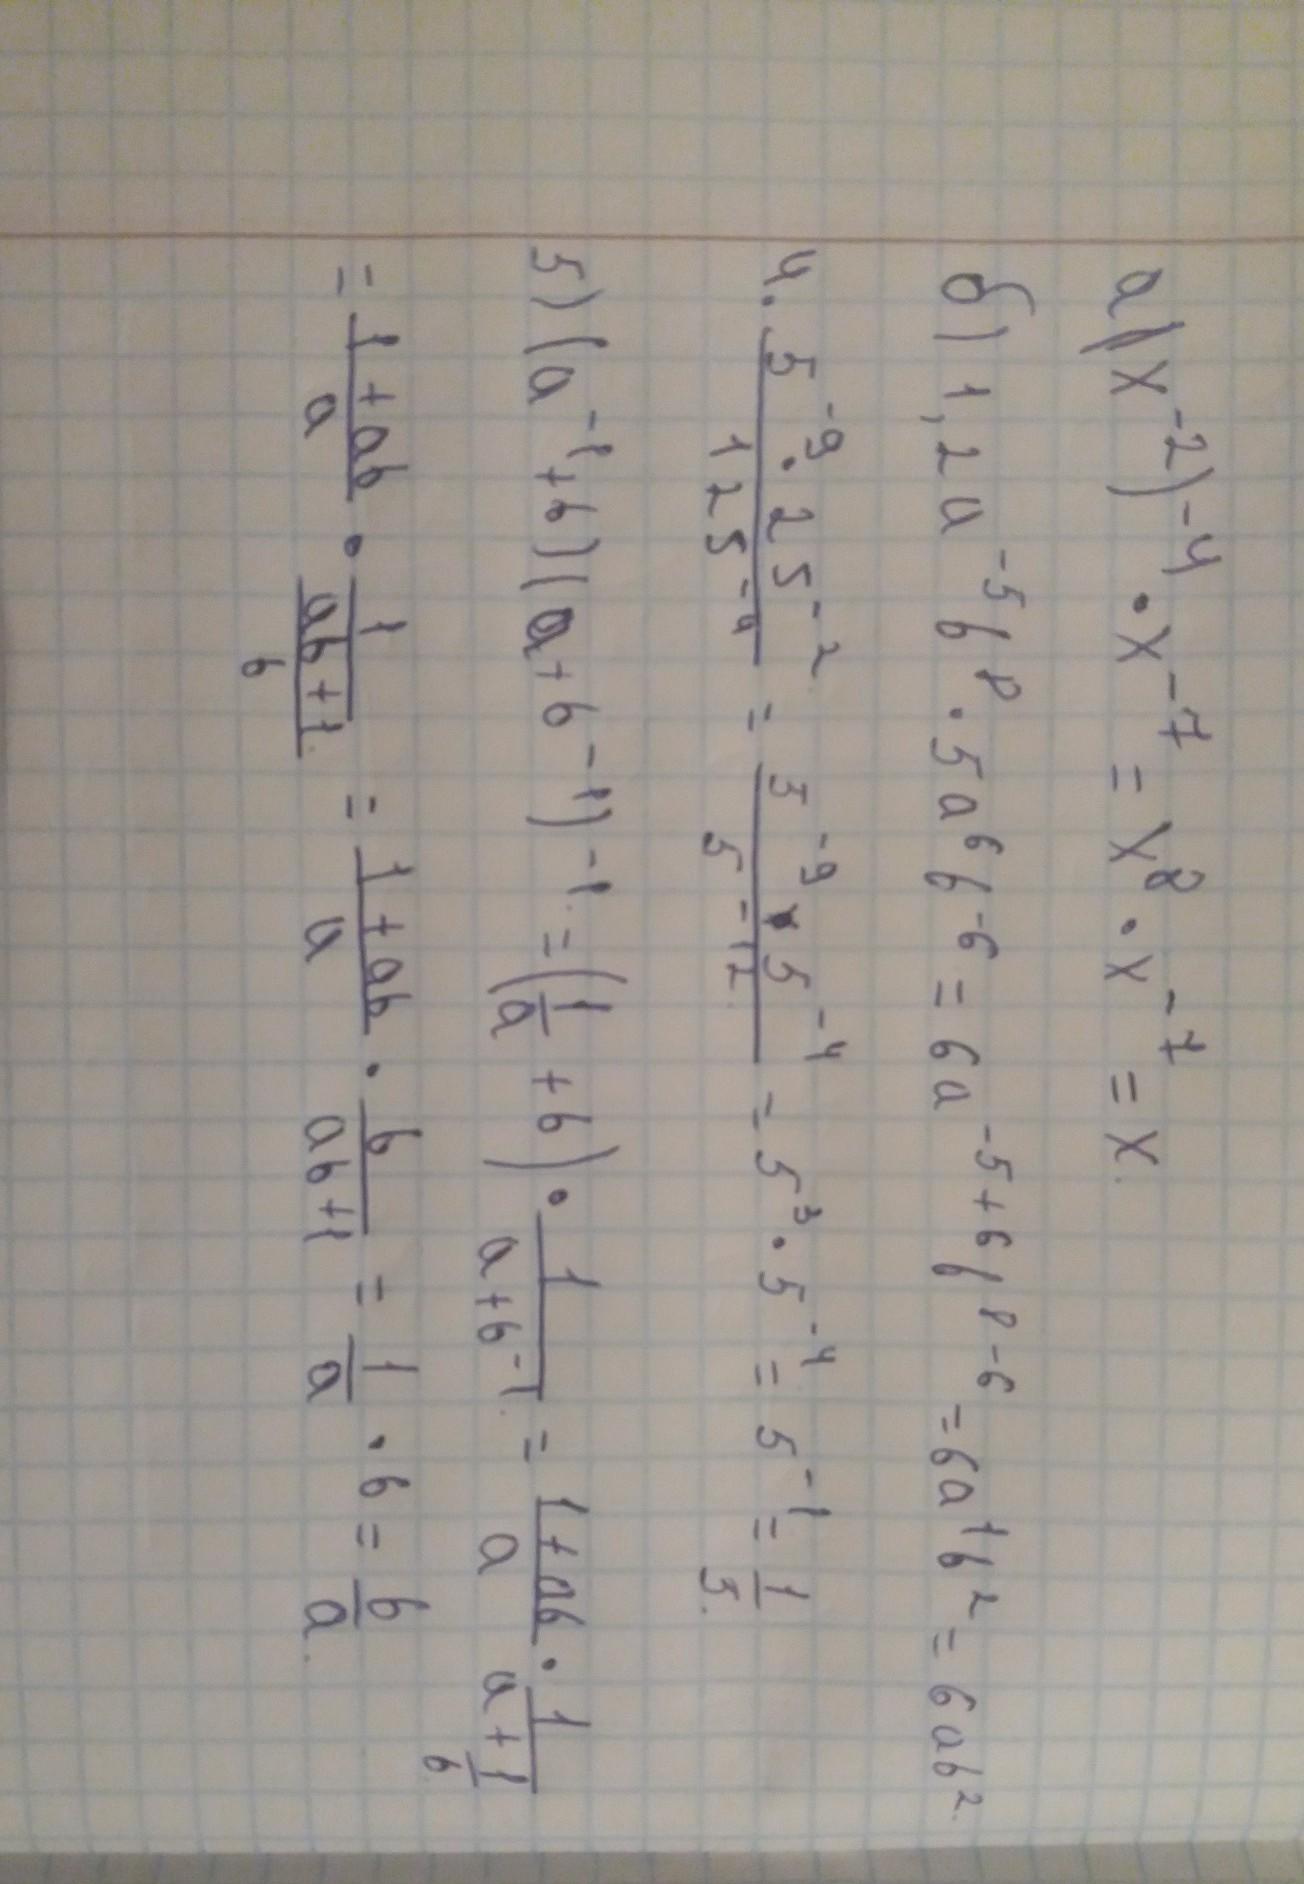 а) (x⁻²)⁻⁴ · x⁻⁷ = x⁸ · x⁻⁷ = x.
б) 1,2a⁻⁵b⁸ · 5a⁶b⁻⁶ = 6a⁻⁵⁺⁶b⁸⁻⁶ = 6a¹b² = 6ab².
4. (5⁻⁹ · 25⁻²)/(125⁻⁴) = (5⁻⁹ · 5⁻⁴)/(5⁻¹²) = 5³ · 5⁻⁴ = 5⁻¹ = 1/5.
5) (a⁻¹ + b)(a + b⁻¹)⁻¹ = (1/a + b) · 1/(a + b⁻¹) = (1 + ab)/a · 1/(a + 1/b)
= (1 + ab)/a · 1/((ab + 1)/b) = (1 + ab)/a · b/(ab + 1) = 1/a · b = b/a.